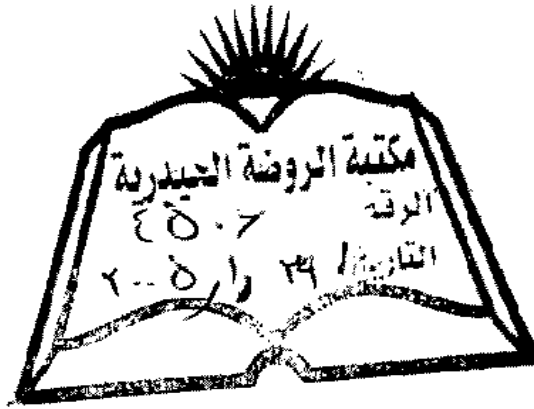 مكتبة الروضة الحيدرية
الرقم
التاريخ ٢٩ / ١ / ٢٠٠٥